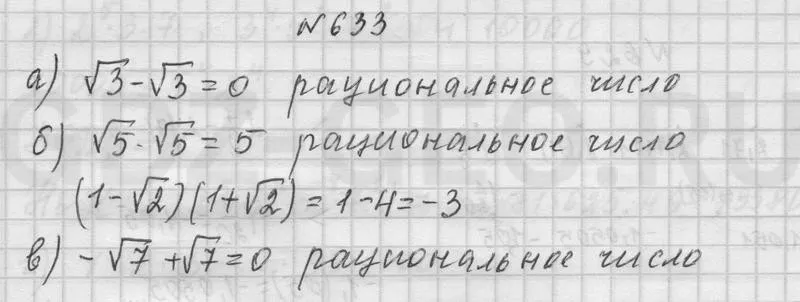 №633
а) √3-√3=0 рациональное число
б) √5·√5=5 рациональное число
(1-√2)(1+√2)=1-4=-3
в) -√7+√7=0 рациональное число